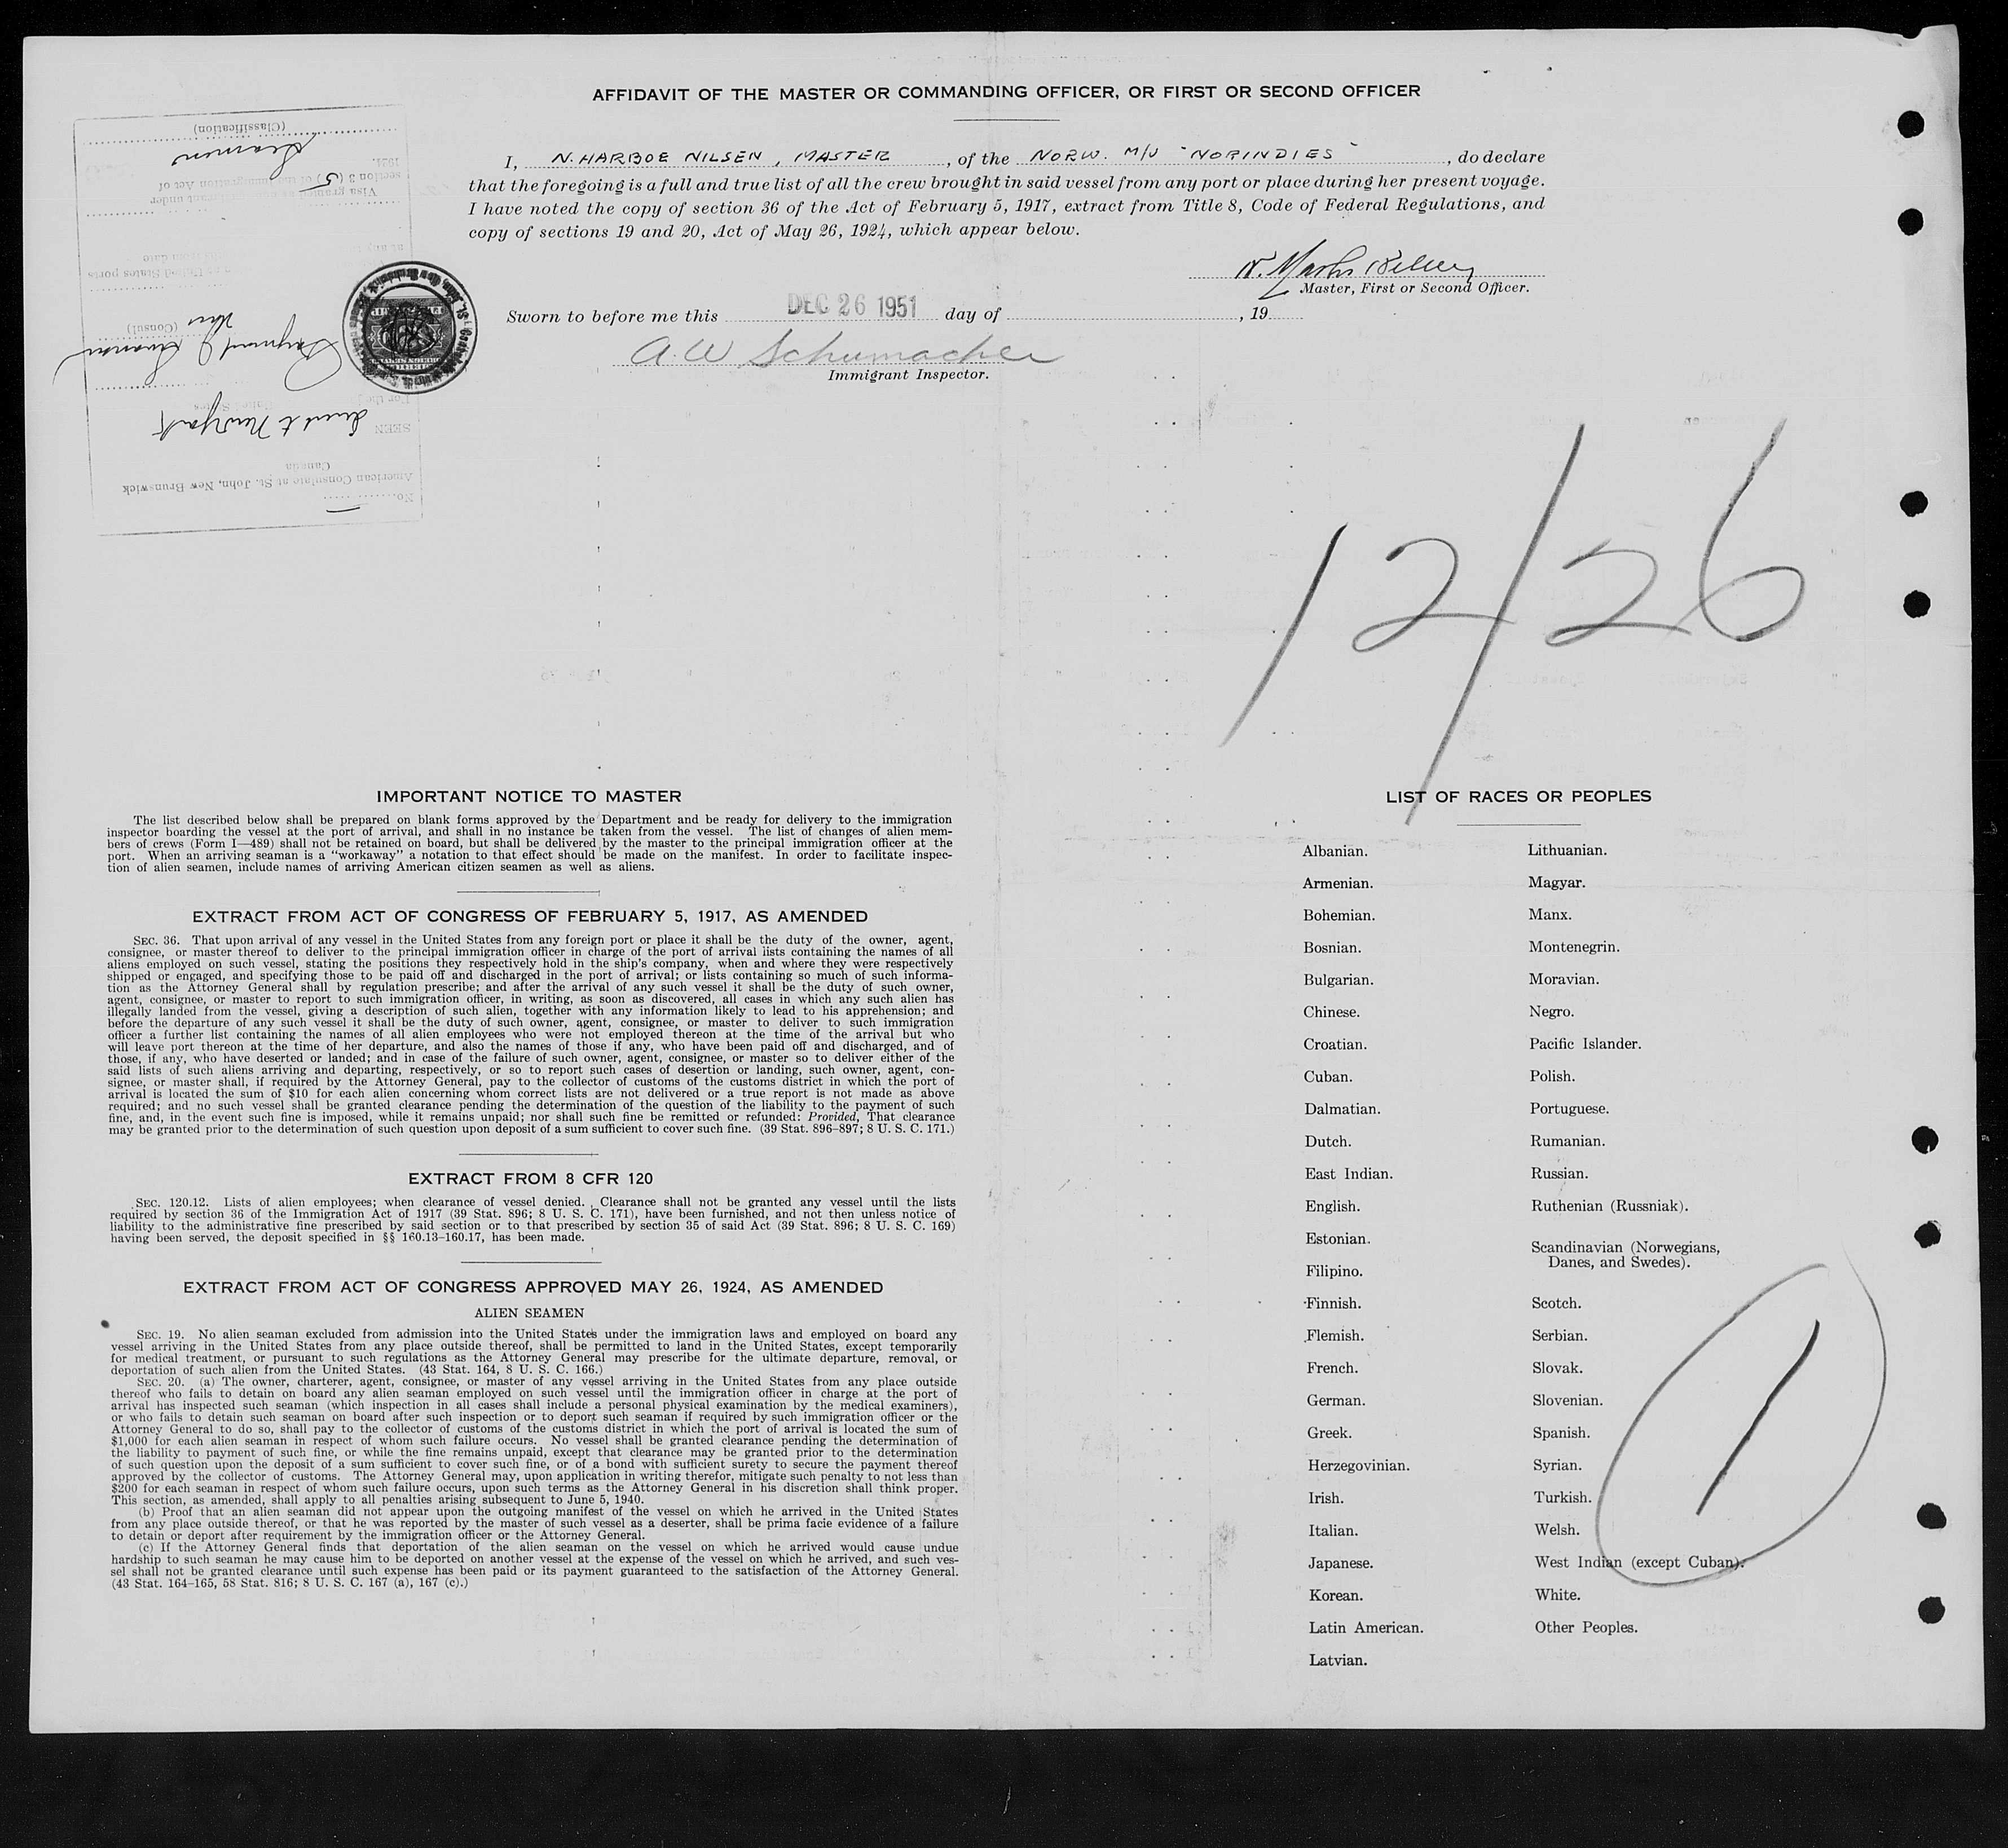 AFFIDAVIT OF THE MASTER OR COMMANDING OFFICER, OR FIRST OR SECOND OFFICER
I, N. HARBOE NILSEN, MASTER, of the NORW. M/V "NORINDIES", do declare
that the foregoing is a full and true list of all the crew brought in said vessel from any port or place during her present voyage.
I have noted the copy of section 36 of the Act of February 5, 1917, extract from Title 8, Code of Federal Regulations, and
copy of sections 19 and 20, Act of May 26, 1924, which appear below.
Master, First or Second Officer.
Sworn to before me this DEC 26 1951 day of , 19
A. W. Schumacher
Immigrant Inspector.
No.
American Consulate at St. John, New Brunswick
Canada
SEEN
For the
(Consul)
United States ports
date
Visa granted under
section 3 (5) of the Immigration Act of
1924.
Seamen
(Classification)
12/26
IMPORTANT NOTICE TO MASTER
The list described below shall be prepared on blank forms approved by the Department and be ready for delivery to the immigration
inspector boarding the vessel at the port of arrival, and shall in no instance be taken from the vessel. The list of changes of alien mem-
bers of crews (Form I—489) shall not be retained on board, but shall be delivered by the master to the principal immigration officer at the
port. When an arriving seaman is a "workaway" a notation to that effect should be made on the manifest. In order to facilitate inspec-
tion of alien seamen, include names of arriving American citizen seamen as well as aliens.
EXTRACT FROM ACT OF CONGRESS OF FEBRUARY 5, 1917, AS AMENDED
SEC. 36. That upon arrival of any vessel in the United States from any foreign port or place it shall be the duty of the owner, agent,
consignee, or master thereof to deliver to the principal immigration officer in charge of the port of arrival lists containing the names of all
aliens employed on such vessel, stating the positions they respectively hold in the ship's company, when and where they were respectively
shipped or engaged, and specifying those to be paid off and discharged in the port of arrival; or lists containing so much of such informa-
tion as the Attorney General shall by regulation prescribe; and after the arrival of any such vessel it shall be the duty of such owner,
agent, consignee, or master to report to such immigration officer, in writing, as soon as discovered, all cases in which any such alien has
illegally landed from the vessel, giving a description of such alien, together with any information likely to lead to his apprehension; and
before the departure of any such vessel it shall be the duty of such owner, agent, consignee, or master to deliver to such immigration
officer a further list containing the names of all alien employees who were not employed thereon at the time of the arrival but who
will leave port thereon at the time of her departure, and also the names of those if any, who have been paid off and discharged, and of
those, if any, who have deserted or landed; and in case of the failure of such owner, agent, consignee, or master so to deliver either of the
said lists of such aliens arriving and departing, respectively, or so to report such cases of desertion or landing, such owner, agent, con-
signee, or master shall, if required by the Attorney General, pay to the collector of customs of the customs district in which the port of
arrival is located the sum of $10 for each alien concerning whom correct lists are not delivered or a true report is not made as above
required; and no such vessel shall be granted clearance pending the determination of the question of the liability to the payment of such
fine, and, in the event such fine is imposed, while it remains unpaid; nor shall such fine be remitted or refunded: Provided, That clearance
may be granted prior to the determination of such question upon deposit of a sum sufficient to cover such fine. (39 Stat. 896–897; 8 U. S. C. 171.)
EXTRACT FROM 8 CFR 120
SEC. 120.12. Lists of alien employees; when clearance of vessel denied. Clearance shall not be granted any vessel until the lists
required by section 36 of the Immigration Act of 1917 (39 Stat. 896; 8 U. S. C. 171), have been furnished, and not then unless notice of
liability to the administrative fine prescribed by said section or to that prescribed by section 35 of said Act (39 Stat. 896; 8 U. S. C. 169)
having been served, the deposit specified in §§ 160.13–160.17, has been made.
EXTRACT FROM ACT OF CONGRESS APPROVED MAY 26, 1924, AS AMENDED
ALIEN SEAMEN
SEC. 19. No alien seaman excluded from admission into the United States under the immigration laws and employed on board any
vessel arriving in the United States from any place outside thereof, shall be permitted to land in the United States, except temporarily
for medical treatment, or pursuant to such regulations as the Attorney General may prescribe for the ultimate departure, removal, or
deportation of such alien from the United States. (43 Stat. 164, 8 U. S. C. 166.)
SEC. 20. (a) The owner, charterer, agent, consignee, or master of any vessel arriving in the United States from any place outside
thereof who fails to detain on board any alien seaman employed on such vessel until the immigration officer in charge at the port of
arrival has inspected such seaman (which inspection in all cases shall include a personal physical examination by the medical examiners),
or who fails to detain such seaman on board after such inspection or to deport such seaman if required by such immigration officer or the
Attorney General to do so, shall pay to the collector of customs of the customs district in which the port of arrival is located the sum of
$1,000 for each alien seaman in respect of whom such failure occurs. No vessel shall be granted clearance pending the determination of
the liability to payment of such fine, or while the fine remains unpaid, except that clearance may be granted prior to the determination
of such question upon the deposit of a sum sufficient to cover such fine, or of a bond with sufficient surety to secure the payment thereof
approved by the collector of customs. The Attorney General may, upon application in writing therefor, mitigate such penalty to not less than
$200 for each seaman in respect of whom such failure occurs, upon such terms as the Attorney General in his discretion shall think proper.
This section, as amended, shall apply to all penalties arising subsequent to June 5, 1940.
(b) Proof that an alien seaman did not appear upon the outgoing manifest of the vessel on which he arrived in the United States
from any place outside thereof, or that he was reported by the master of such vessel as a deserter, shall be prima facie evidence of a failure
to detain or deport after requirement by the immigration officer or the Attorney General.
(c) If the Attorney General finds that deportation of the alien seaman on the vessel on which he arrived would cause undue
hardship to such seaman he may cause him to be deported on another vessel at the expense of the vessel on which he arrived, and such ves-
sel shall not be granted clearance until such expense has been paid or its payment guaranteed to the satisfaction of the Attorney General.
(43 Stat. 164–165, 58 Stat. 816; 8 U. S. C. 167 (a), 167 (c).)
LIST OF RACES OR PEOPLES
Albanian.
Armenian.
Bohemian.
Bosnian.
Bulgarian.
Chinese.
Croatian.
Cuban.
Dalmatian.
Dutch.
East Indian.
English.
Estonian.
Filipino.
Finnish.
Flemish.
French.
German.
Greek.
Herzegovinian.
Irish.
Italian.
Japanese.
Korean.
Latin American.
Latvian.
Lithuanian.
Magyar.
Manx.
Montenegrin.
Moravian.
Negro.
Pacific Islander.
Polish.
Portuguese.
Rumanian.
Russian.
Ruthenian (Russniak).
Scandinavian (Norwegians,
Danes, and Swedes).
Scotch.
Serbian.
Slovak.
Slovenian.
Spanish.
Syrian.
Turkish.
Welsh.
West Indian (except Cuban).
White.
Other Peoples.
1